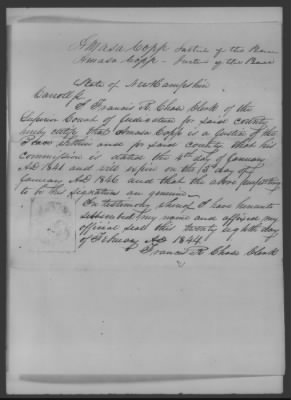 Amasa Copp Justice of the Peace
Amasa Copp - Justice of the Peace
State of New Hampshire
Carroll ss
I Francis R. Chase Clerk of the
Superior Court of Judicature for said county
hereby certify that Amasa Copp is a Justice of the
Peace within and for said county that his
commission is dated the 4th day of January
AD 1841 and will expire on the 5 day of
January AD 1846 and that the above purporting
to be his signature are genuine
In testimony whereof I have hereunto
subscribed my name and affixed my
official seal this twenty eighth day
of February AD 1844
Francis R Chase Clerk